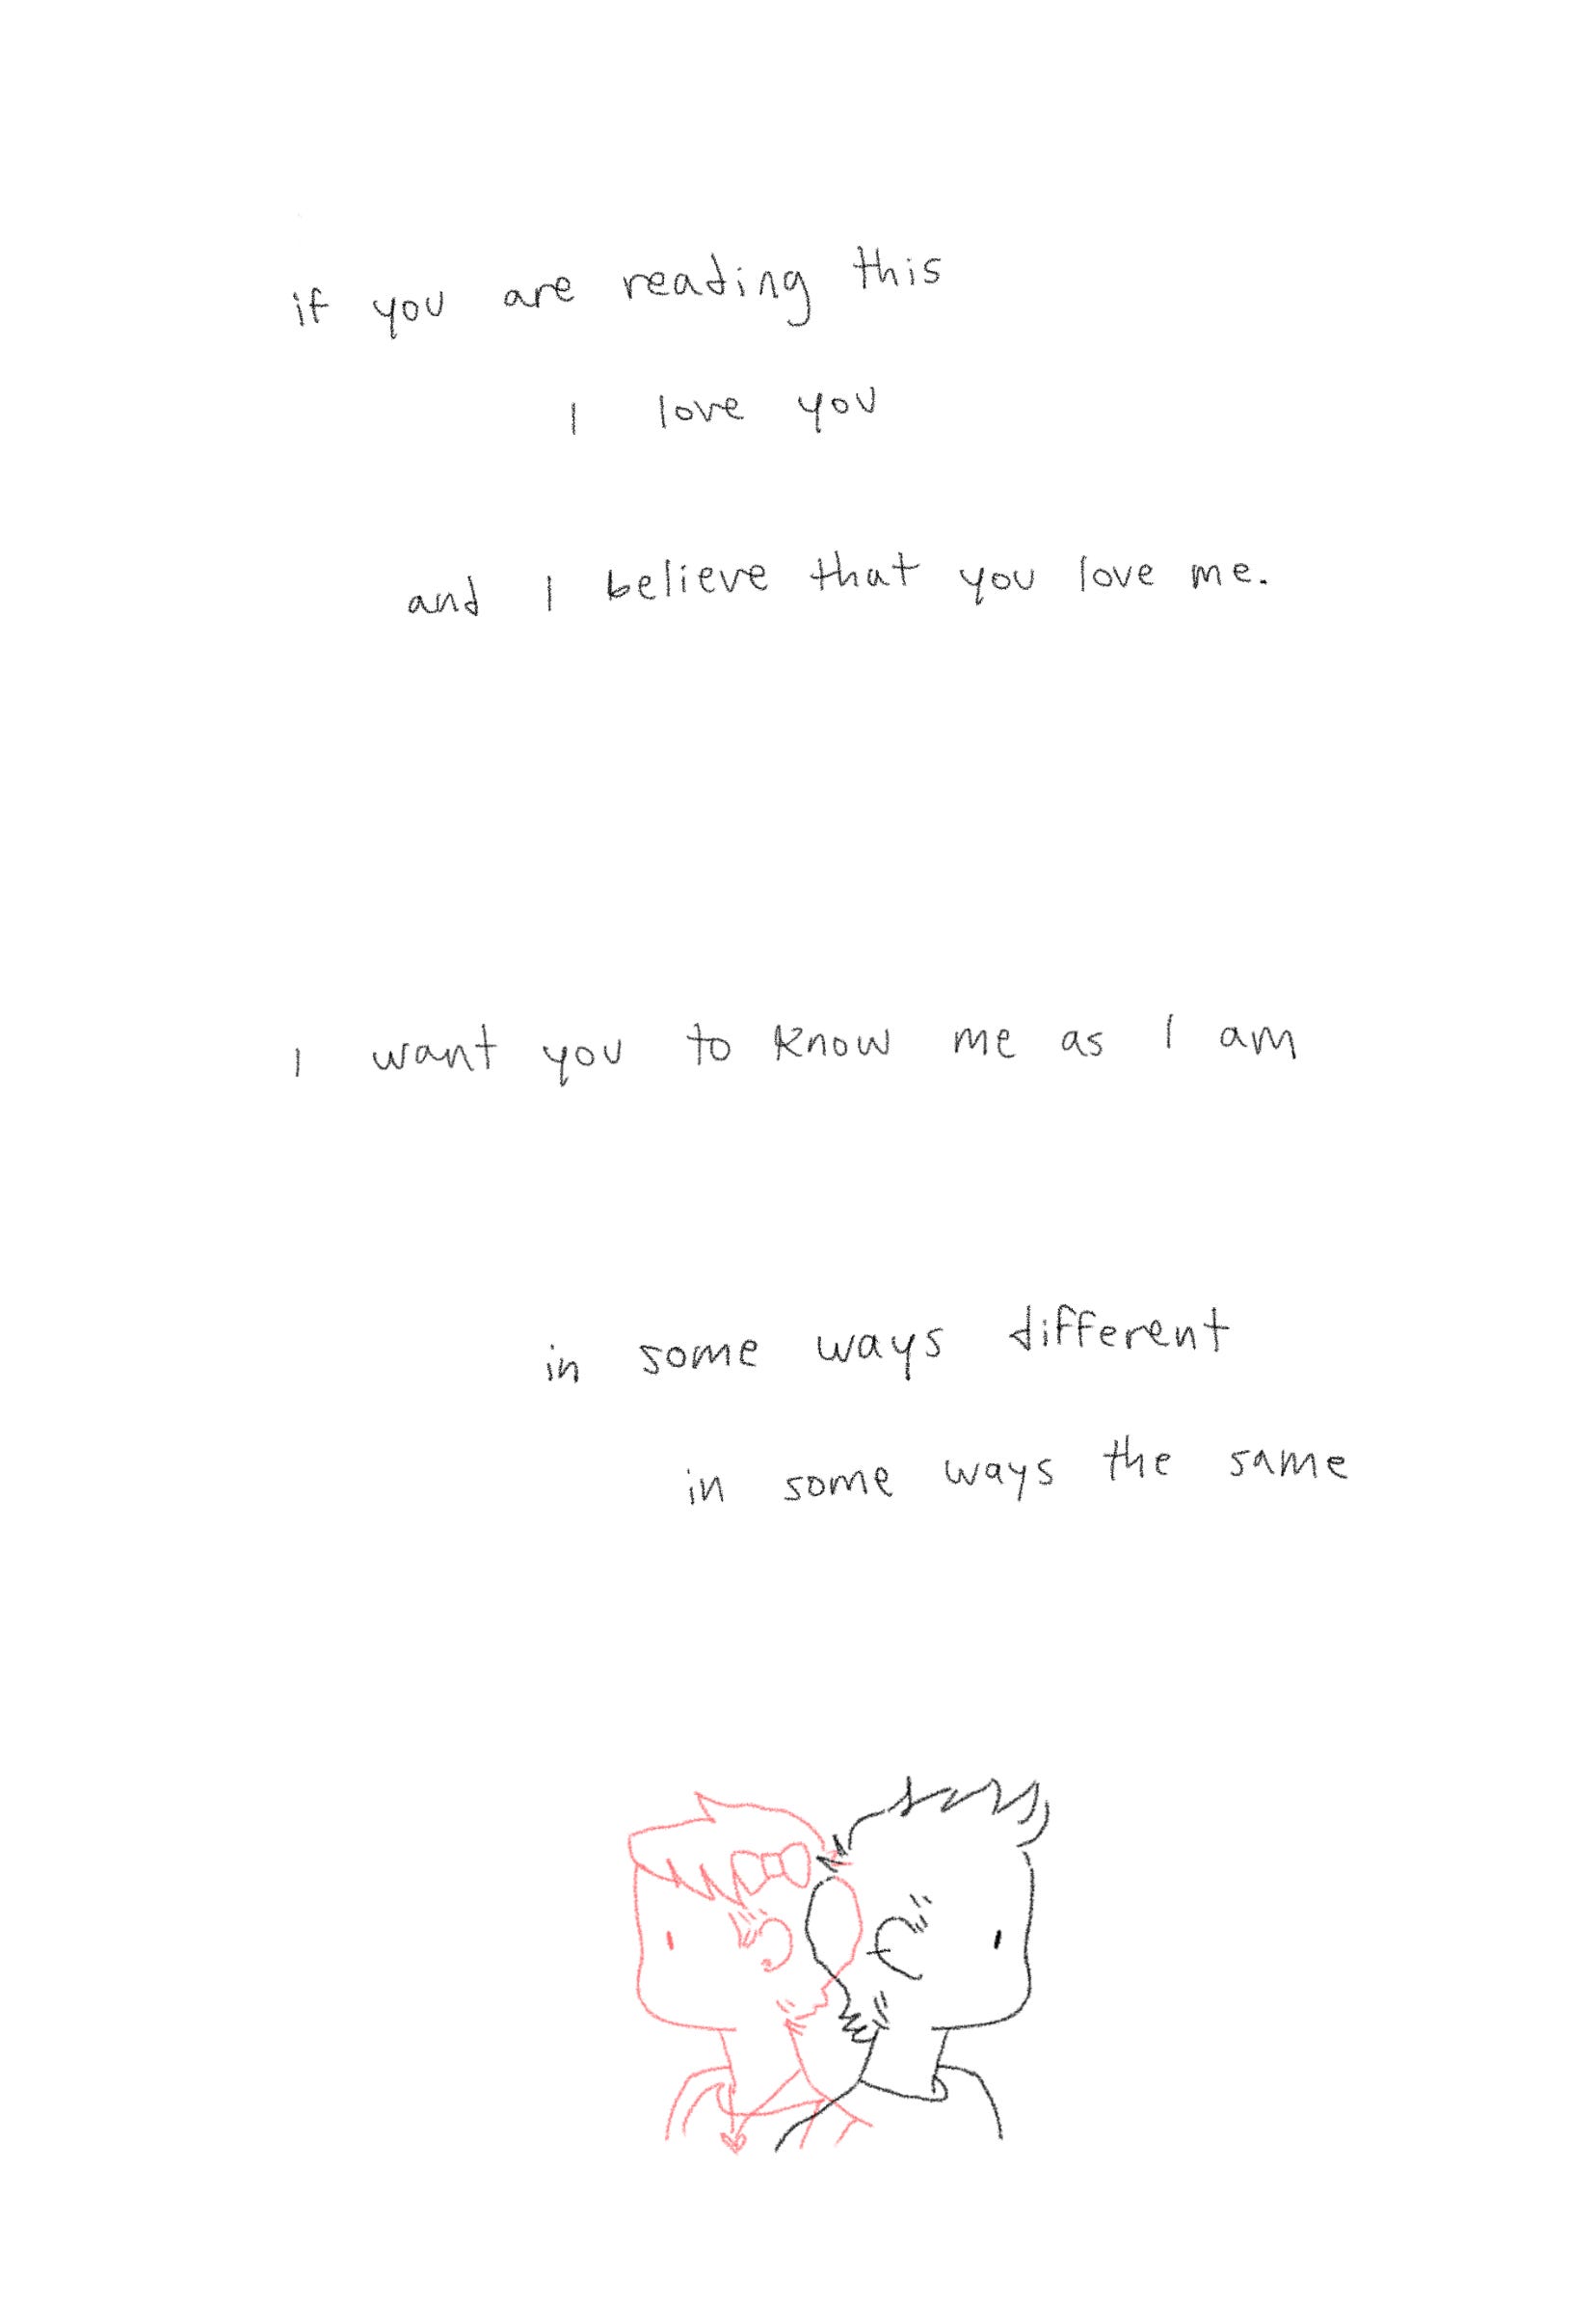 if you are reading this
I love you
and I believe that you love me.
I want you to know me as I am
in some ways different
in some ways the same